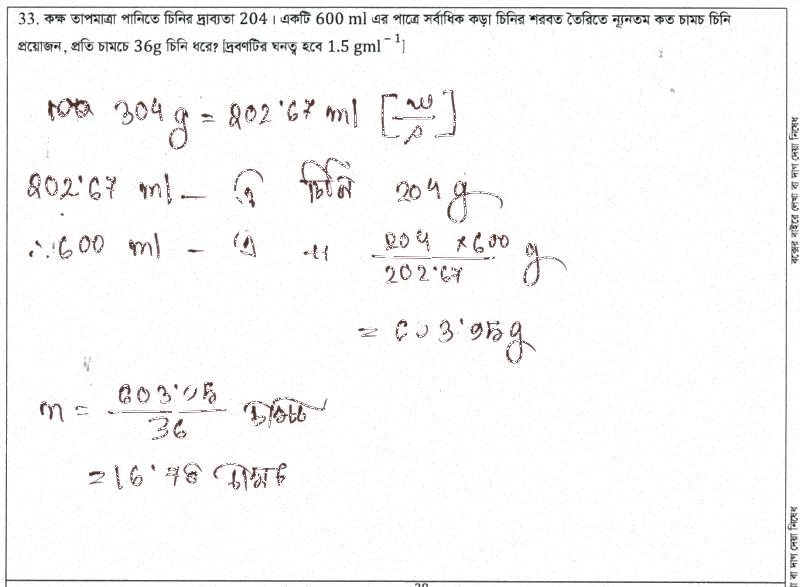 33. কক্ষ তাপমাত্রা পানিতে চিনির দ্রাব্যতা 204। একটি 600 ml এর পাত্রে সর্বাধিক কড়া চিনির শরবত তৈরিতে ন্যূনতম কত চামচ চিনি
প্রয়োজন, প্রতি চামচে 36g চিনি ধরে? [দ্রবণটির ঘনত্ব হবে 1.5 gml⁻¹]
304 g = 202.67 ml [w/ρ]
202.67 ml - এ চিনি 204 g
∴ 600 ml - এ " 204 × 600 / 202.67 g
= 603.95 g
n = 603.95 / 36 চামচ
= 16.78 চামচ
বক্সের বাইরে লেখা বা দাগ দেয়া নিষেধ
বা দাগ দেয়া নিষেধ